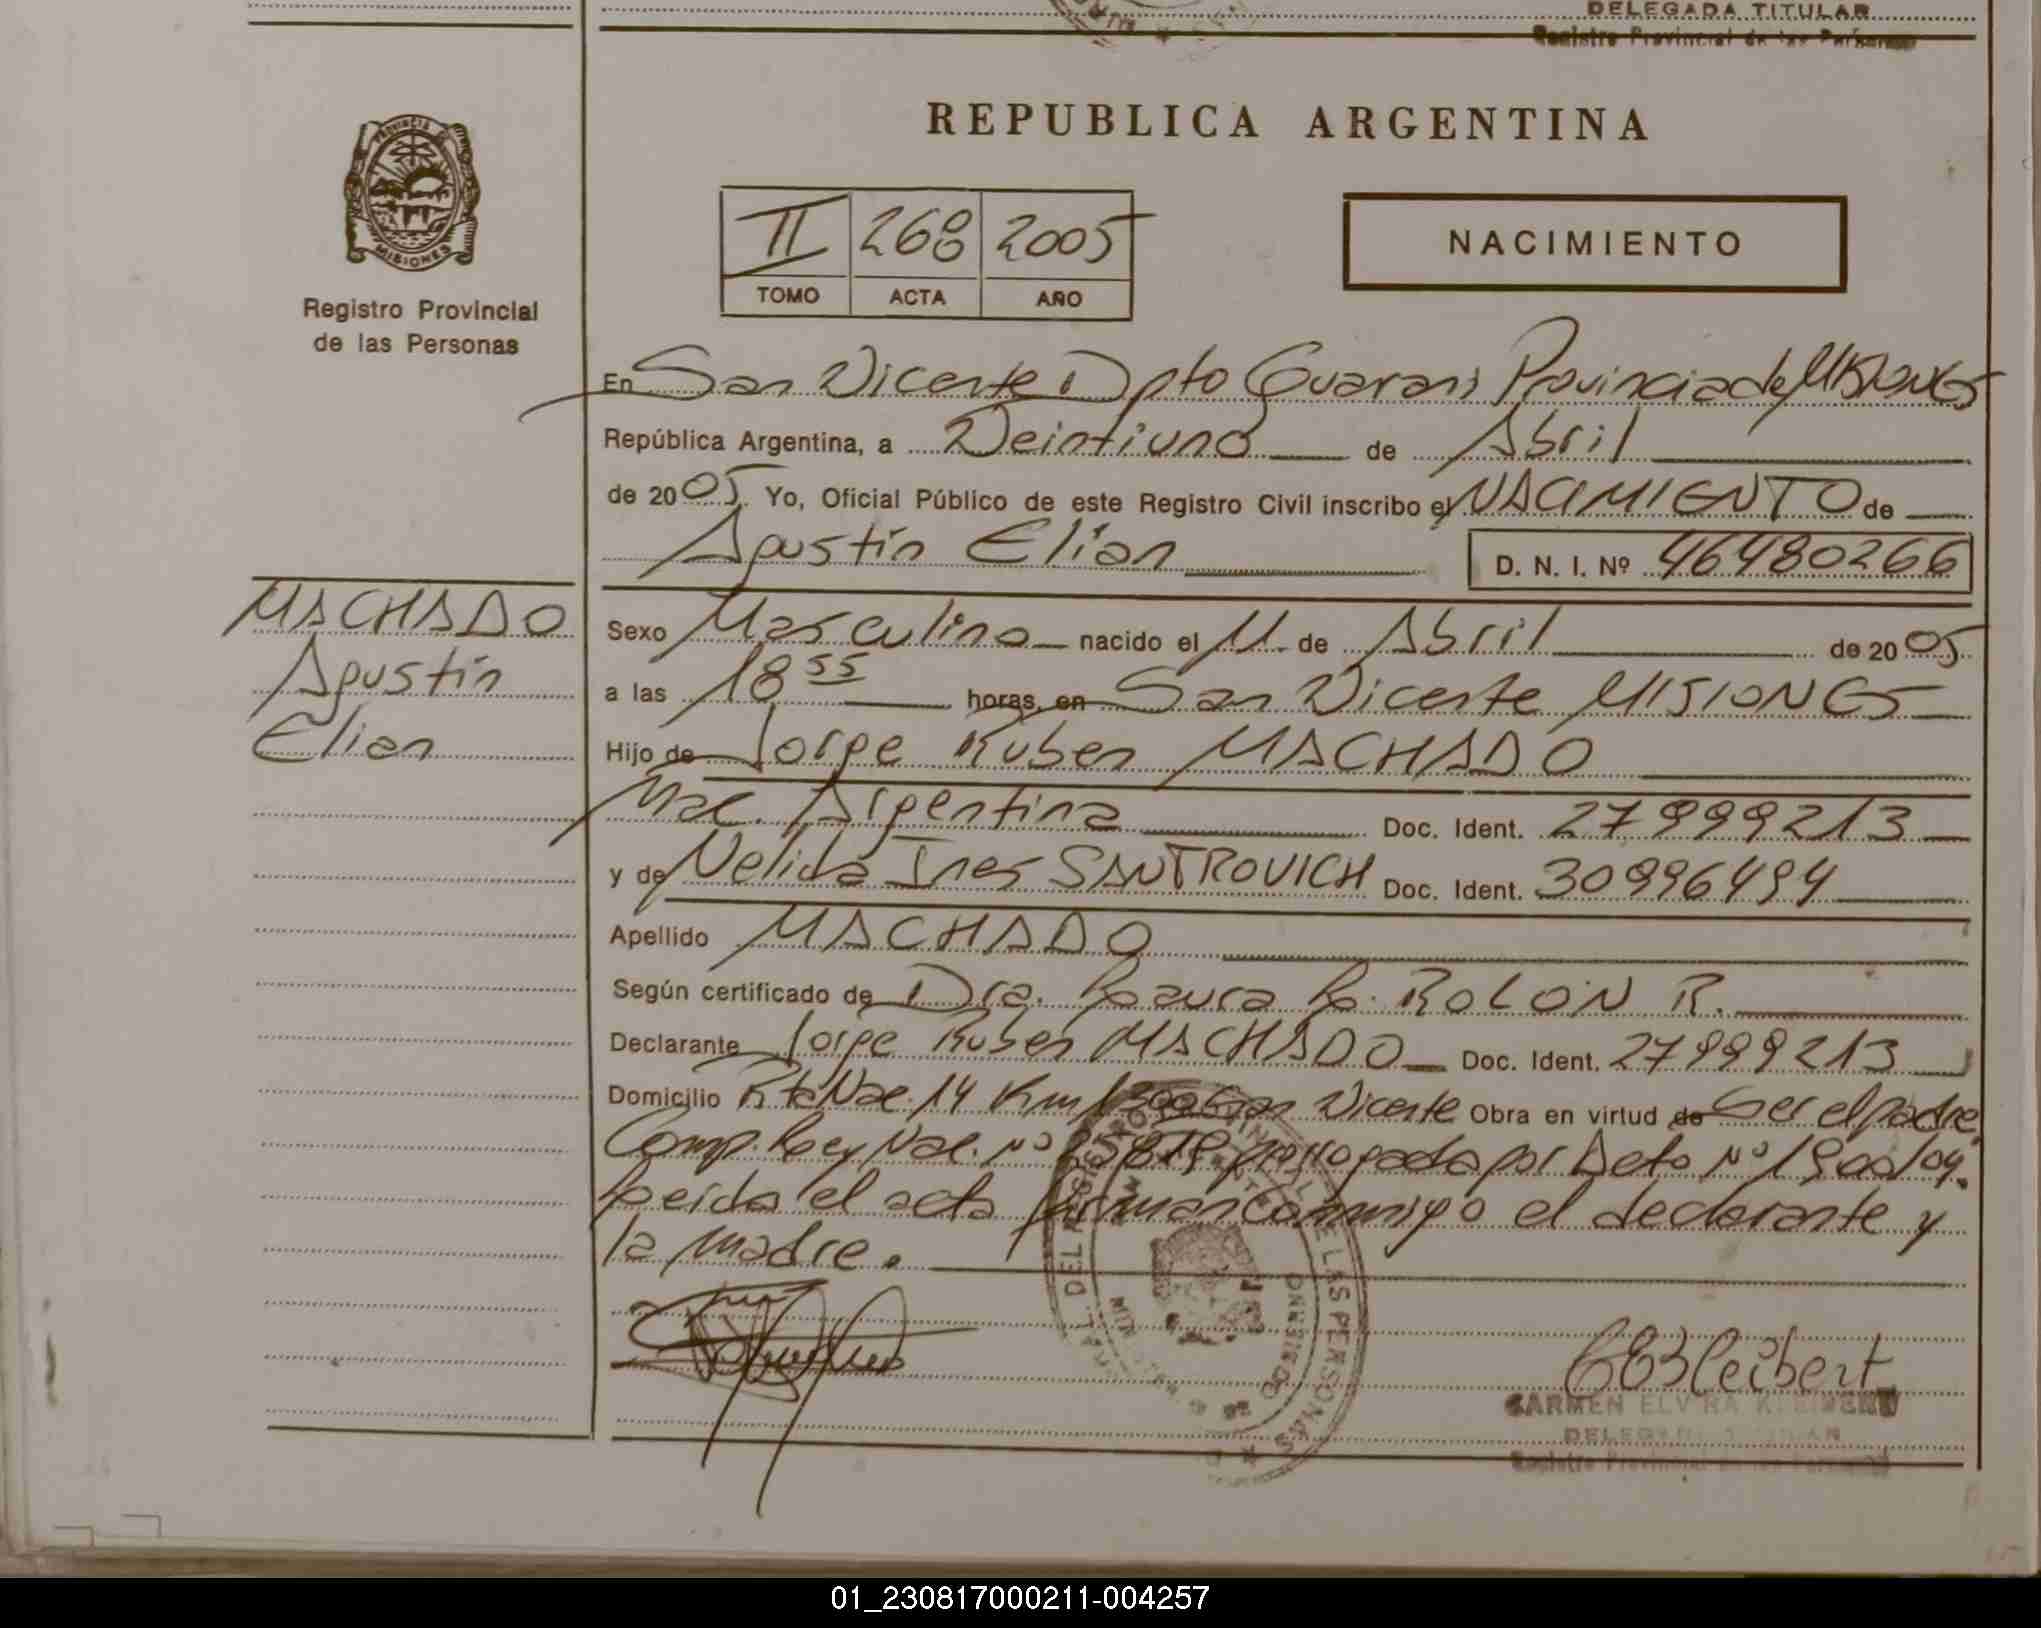 DELEGADA TITULAR
Registro Provincial de las Personas
REPUBLICA ARGENTINA
PROVINCIA DE
MISIONES
Registro Provincial
de las Personas
II 268 2005
TOMO ACTA AÑO
NACIMIENTO
En San Vicente Dpto Guarani Provincia de MISIONES
República Argentina, a Veintiuno de Abril
de 2005. Yo, Oficial Público de este Registro Civil inscribo el NACIMIENTO de
Agustín Elian D. N. I. Nº 46480266
MACHADO
Agustín
Elian
Sexo Masculino nacido el 11 de Abril de 2005
a las 18 55 horas, en San Vicente MISIONES
Hijo de Jorge Ruben MACHADO
Nac. Argentina Doc. Ident. 27999213
y de Nelida Ines SANTROVICH Doc. Ident. 30996494
Apellido MACHADO
Según certificado de Dra. Laura L. ROLON R.
Declarante Jorge Ruben MACHADO Doc. Ident. 27999213
Domicilio Rta Nac. 14 Km San Vicente Obra en virtud de Ser el padre.
Comp. Ley Nac. Nº prorrogada por Dcto Nº 1900/04.
Leida el acta firman conmigo el declarante y
la madre.
REGISTRO PROVINCIAL DE LAS PERSONAS
GOBIERNO
CARMEN ELVIRA KLEIBERT
DELEGADA TITULAR
Registro Provincial de las Personas
01_230817000211-004257